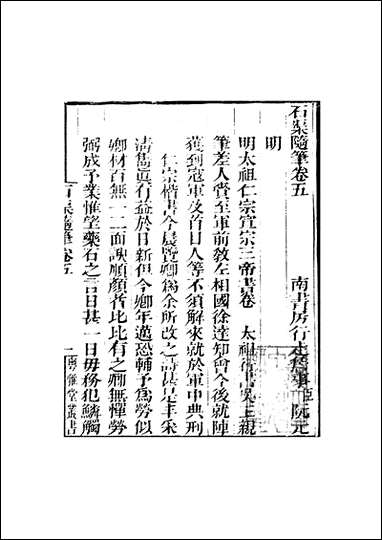 石渠隨筆卷五
南書房行走詹事臣阮元
明
明太祖仁宗宣宗三帝書卷　太祖楷書吳王親
筆差人賫至軍前敎左相國徐達知會今後就陣
獲到寇軍及首目人等不須解來就於軍中典刑
仁宗楷書今晨覽卿爲余所改之詩甚是丰采
淸雋眞有益於日新但今卿年邁恐輔予爲勞似
卿材百無一二面諛順顏者比比有之卿無憚勞
弼成予業惟望藥石之言日甚一日毋務犯鱗觸
石渠隨筆卷五
一
粵雅堂叢書